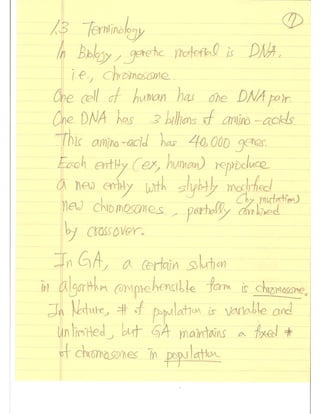 7
1.3 Terminology
In Biology, genetic material is DNA.
i.e., chromosome.
One cell of human has one DNA pair.
One DNA has 3 billions of amino-acids
This amino-acid has 40,000 genes.
Each entity (ex, human) reproduce
a new entity with slightly modified
(by mutation)
new chromosomes, partially combined
by crossover.
In GA, a certain solution
in algorithm comprehensible form is chromosome.
In Nature, # of population is variable and
unlimited, but GA maintains a fixed #
of chromosomes in population